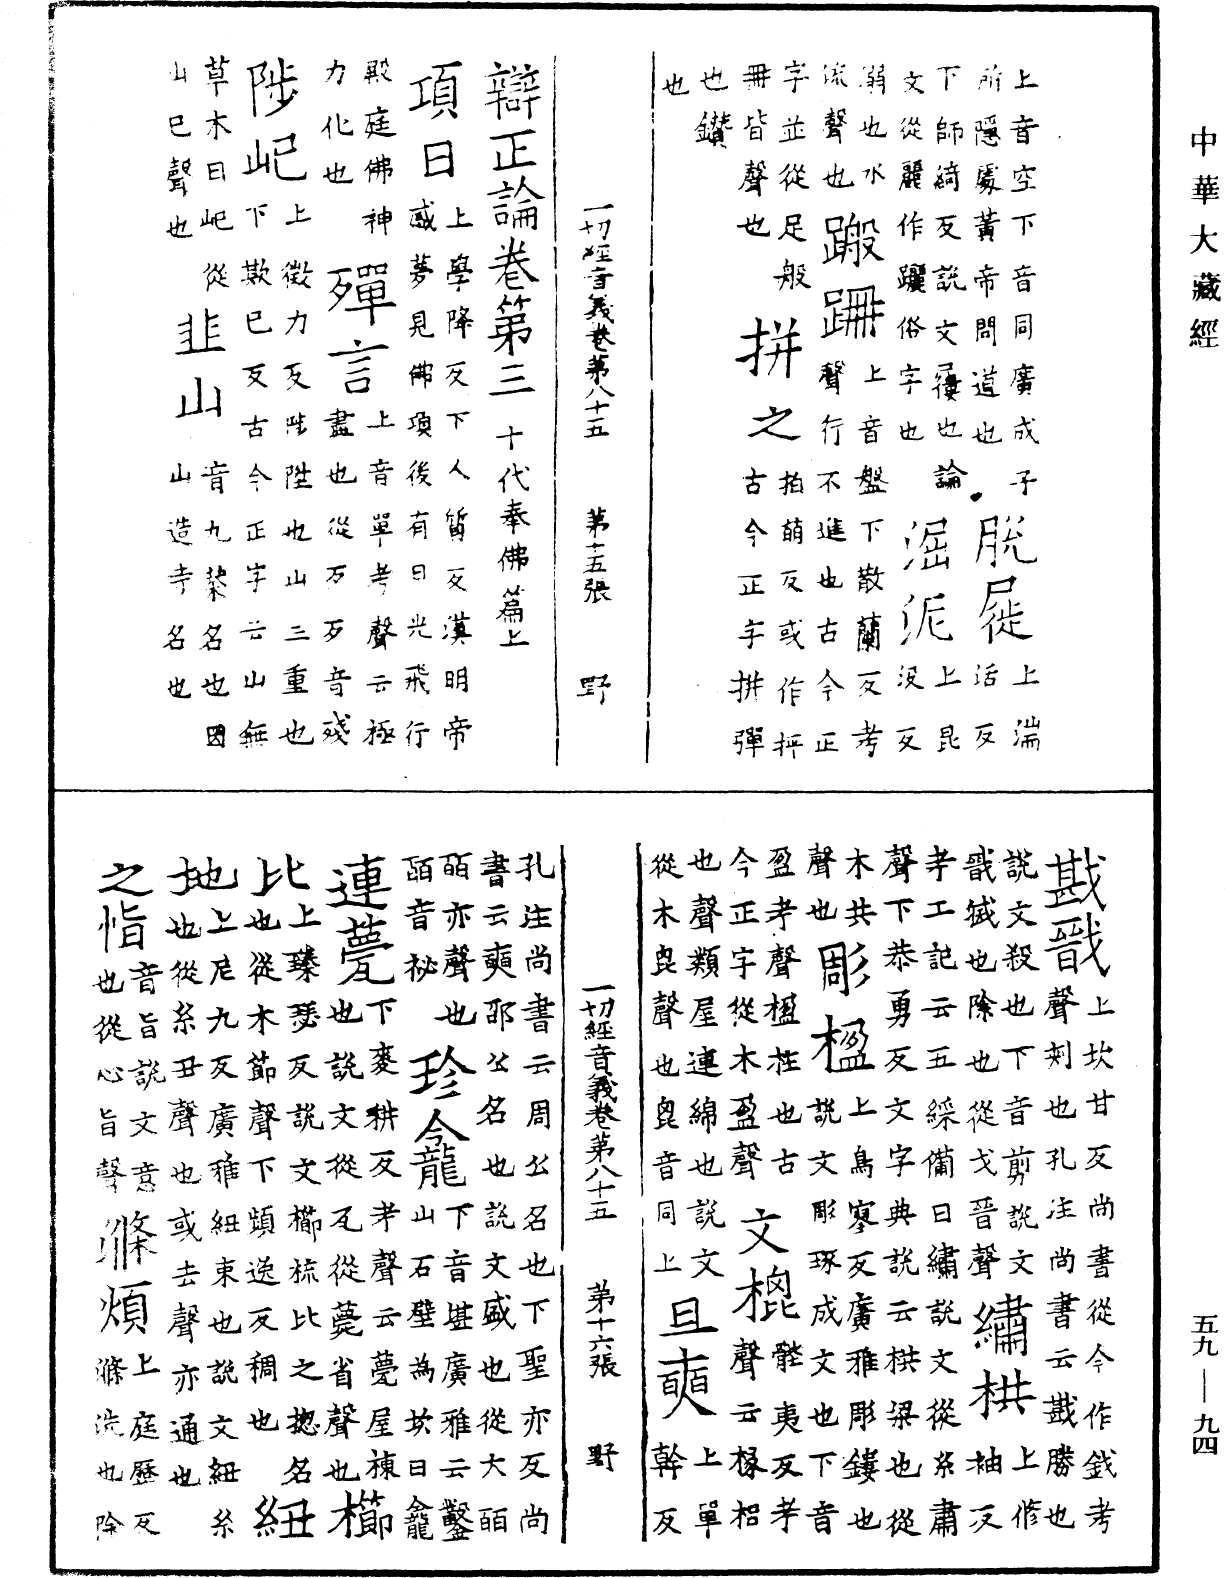 中華大藏經
上音空下音同廣成子
所隱處黃帝問道也
脫屣
上湍
活反
下師綺反說文屨也論
文從麗作躧俗字也
淈泥
上昆
沒反
溺也水
流聲也
蹣跚
上音盤下散蘭反考
聲行不進也古今正
字並從足般
冊皆聲也
拼之
拍萌反或作抨
古今正字拼彈
也鑽
也
一切經音義卷第八十五 第十五張 野
辯正論卷第三 十代奉佛篇上
項日
上學降反下人質反漢明帝
感夢見佛項後有日光飛行
殿庭佛神
力化也
殫言
上音單考聲云極
盡也從歹歹音殘
陟屺
上徵力反陟陞也山三重也
下欺已反古今正字云山無
草木曰屺從
山巳聲也
韭山
音九名也因
山造寺名也
戡戩
上坎甘反尚書從今作考
聲刺也孔注尚書云戡勝也
說文殺也下音剪說文
戩㓕也除也從戈晉聲
繡栱
上修
抽反
考工記云五綵備曰繡說文從糸肅
聲下恭勇反文字典說云栱梁也從
木共
聲也
彫楹
上鳥寥反廣雅彫鏤也
說文彫琢成文也下音
盈考聲楹柱也古
今正字從木盈聲
文㮰
髀夷反考
聲云㮰梠
也聲類屋連綿也說文
從木聲也音同上
且奭
上單
幹反
一切經音義卷第八十五 第十六張 野
孔注尚書云周公名也下聖亦反尚
書云奭邵公名也說文盛也從大皕
皕亦聲也
皕音祕
珍龕
下音堪廣雅云鑿
山石壁為坎曰龕
連甍
下麥耕反考聲云甍屋棟
也說文從瓦從薨省聲也
櫛比
上臻瑟反說文櫛梳比之揔名
也從木節聲下頻逸反稠也
紐地
上尼九反廣雅紐束也說文紐糸
也從糸丑聲也或去聲亦通也
之恉
音旨說文意
也從心旨聲
滌煩
上庭歷反
滌洗也除
五九—九四